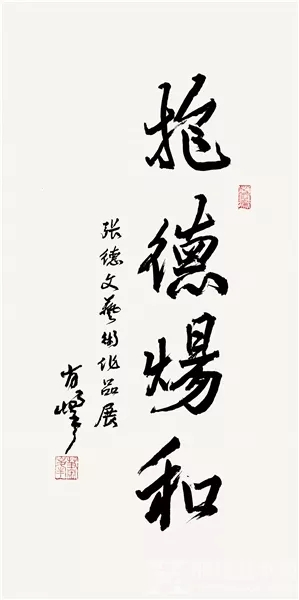 抱德煬和
張德文藝術作品展